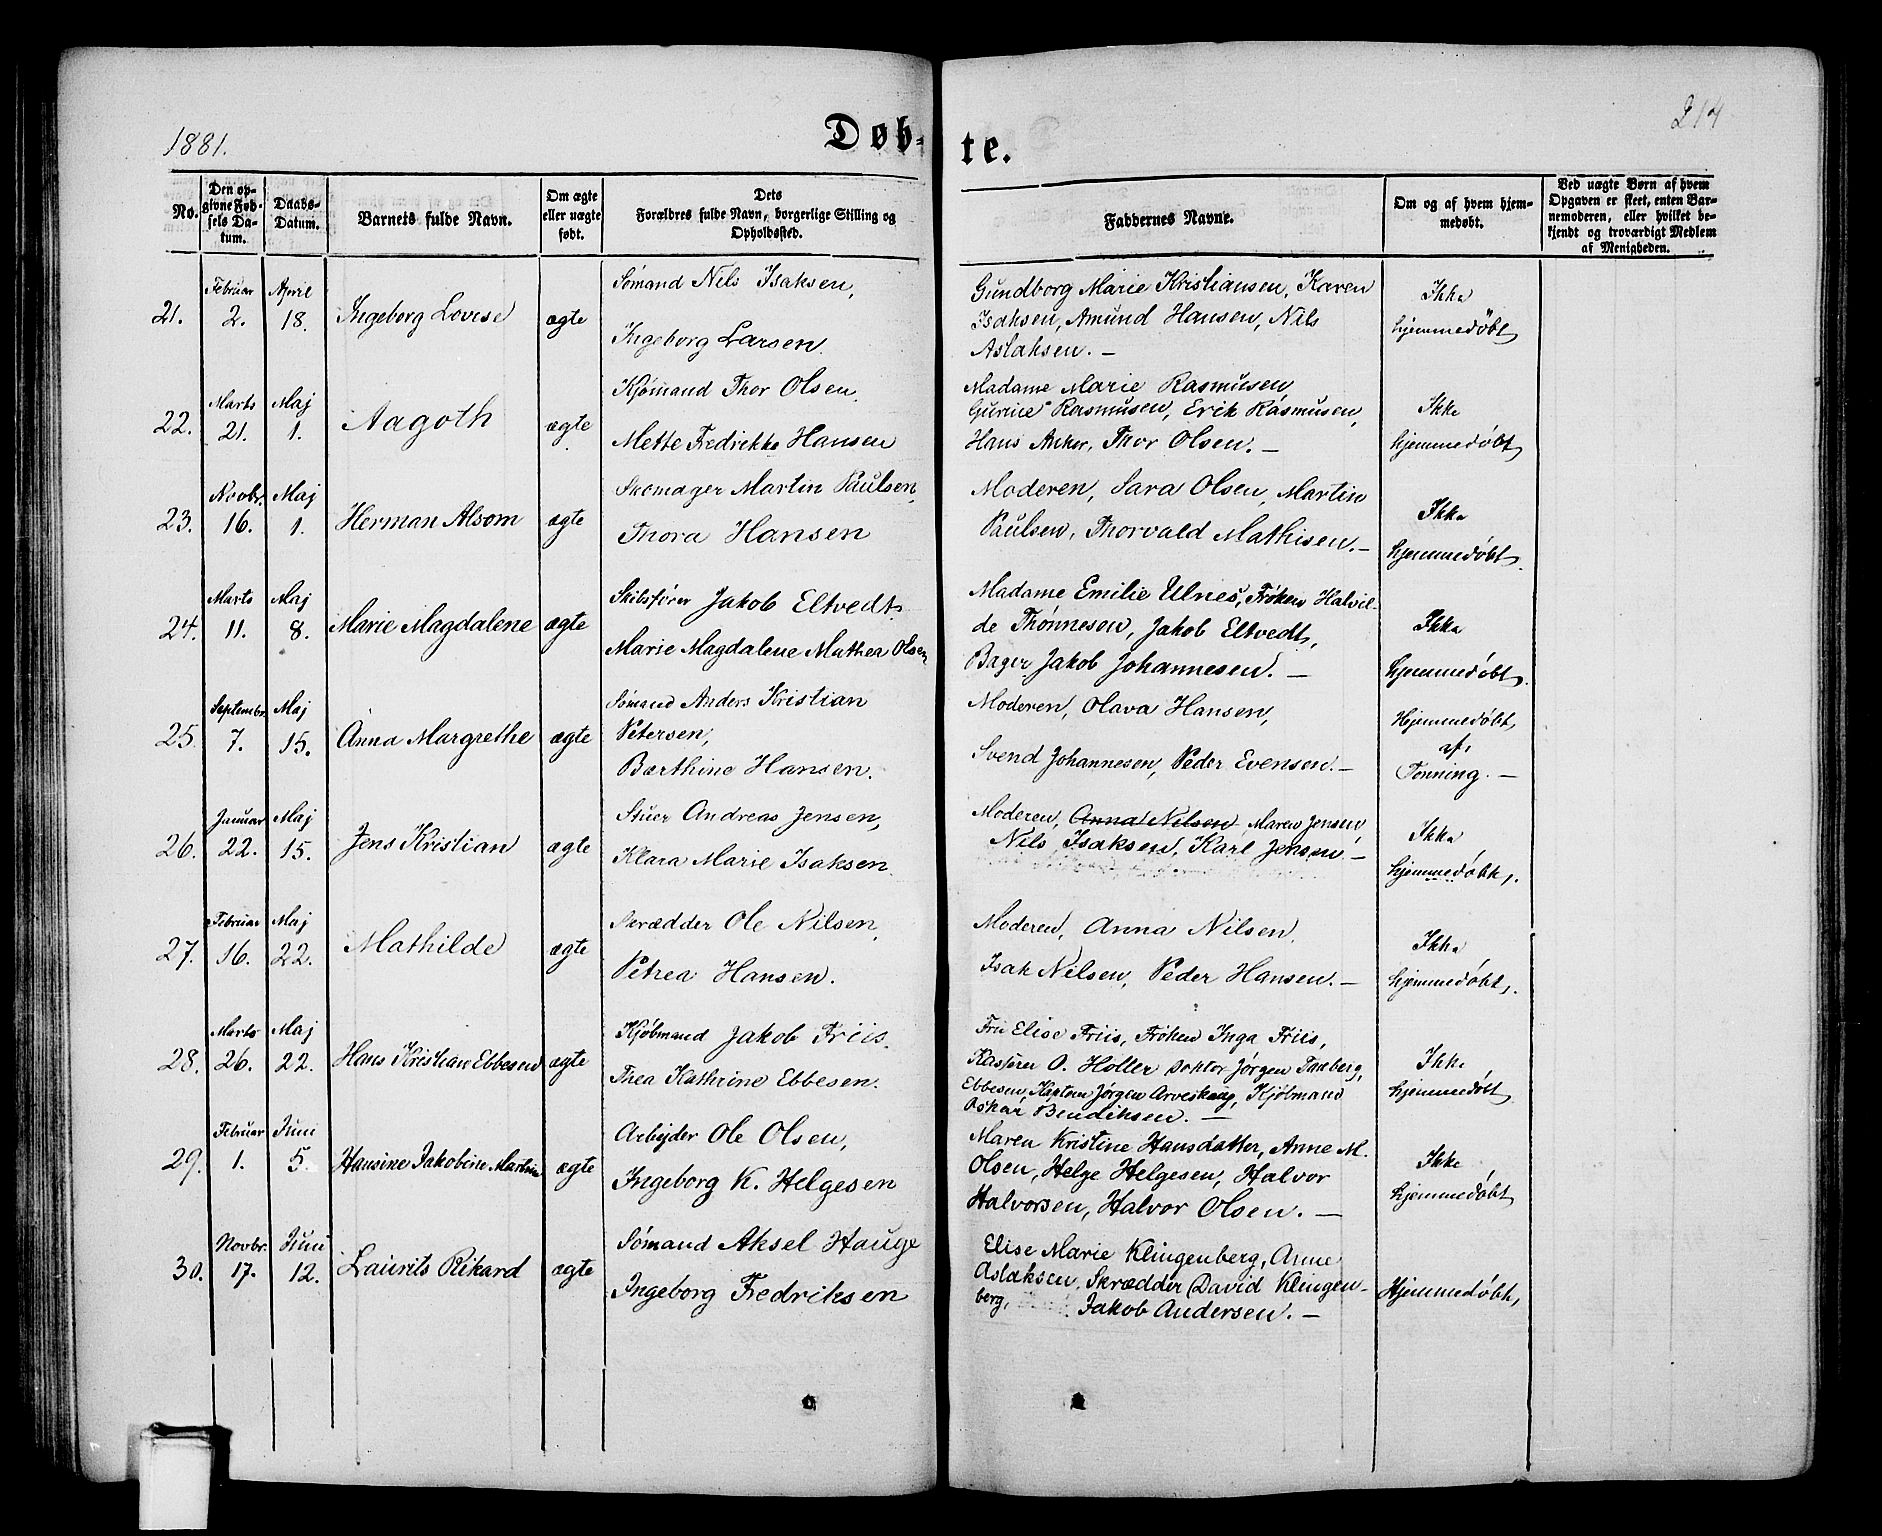 1881.
Døb-
te.
214
No.
Den op-
givne Fød-
sels Da-
tum.
Daabs-
Datum.
Barnets fulde Navn.
Om ægte
eller uægte
født.
Dets
Forældres fulde Navn, borgerlige Stilling og
Opholdssted.
Faddernes Navne.
Om og af hvem hjem-
medøbt.
Ved uægte Børn af hvem
Opgaven er skeet, enten Bar-
nemoderen, eller hvilket be-
kjendt og troværdigt Medlem
af Menigheden.
21.
Februar
2.
April
18.
Ingeborg Lovise
ægte
Sømand Nils Isaksen,
Ingeborg Larsen.
Gundborg Marie Kristiansen, Karen
Isaksen, Amund Hansen, Nils
Aslaksen. —
Ikke
hjemmedøbt
22.
Marts
21.
Maj
1.
Aagoth
ægte
Kjømand Thor Olsen,
Mette Fredrikke Hansen
Madame Marie Rasmusen
Gurine Rasmusen, Erik Rasmusen,
Hans Anker, Thor Olsen. —
Ikke
hjemmedøbt
23.
Novbr.
16.
Maj
1.
Herman Alsom
ægte
Skomager Martin Paulsen,
Thora Hansen
Moderen, Sara Olsen, Martin
Paulsen, Thorvald Mathisen. —
Ikke
hjemmedøbt.
24.
Marts
11.
Maj
8.
Marie Magdalene
ægte
Skibsfører Jakob Eltvedt,
Marie Magdalene Mathea Olsen
Madame Emilie Ulnes, Frøken Halvil-
de Thønnesen, Jakob Eltvedt,
Bager Jakob Johannesen. —
Ikke
hjemmedøbt.
25.
Septembr.
7.
Maj
15.
Anna Margrethe
ægte
Sømand Anders Kristian
Petersen,
Barthine Hansen.
Moderen, Olava Hansen,
Svend Johannesen, Peder Evensen. —
Hjemmedøbt,
af
Tønning. —
26.
Januar
22.
Maj
15.
Jens Kristian
ægte
Stuer Andreas Jensen,
Klara Marie Isaksen
Moderen, Anna Nilsen, Maren Jensen,
Nils Isaksen, Karl Jensen. —
Ikke
hjemmedøbt,.
27.
Februar
16.
Maj
22.
Mathilde
ægte
Skrædder Ole Nilsen,
Petrea Hansen.
Moderen, Anna Nilsen,
Isak Nilsen, Peder Hansen. —
Ikke
hjemmedøbt,.
28.
Marts
26.
Maj
22.
Hans Kristian Ebbesen
ægte
Kjøbmand Jakob Friis.
Thea Kathrine Ebbesen.
Fru Elise Friis, Frøken Inga Friis,
O. Holler Doktor Jørgen Tanberg,
Ebbesen, Kaptein Jørgen Arveskoug, Kjøbmand
Oskar Bendiksen. —
Ikke
hjemmedøbt
29.
Februar
1.
Juni
5.
Hansine Jakobine Martine
ægte
Arbejder Ole Olsen,
Ingeborg K. Helgesen
Maren Kristine Hansdatter, Anne M.
Olsen, Helge Helgesen, Halvor
Halvorsen, Halvor Olsen. —
Ikke
hjemmedøbt
30.
Novbr.
17.
Juni
12.
Laurits Rikard
ægte
Sømand Aksel Hauge
Ingeborg Fredriksen
Elise Marie Klingenberg, Anne
Aslaksen, Skrædder David Klingen-
berg, Jakob Andersen. —
Hjemmedøbt,